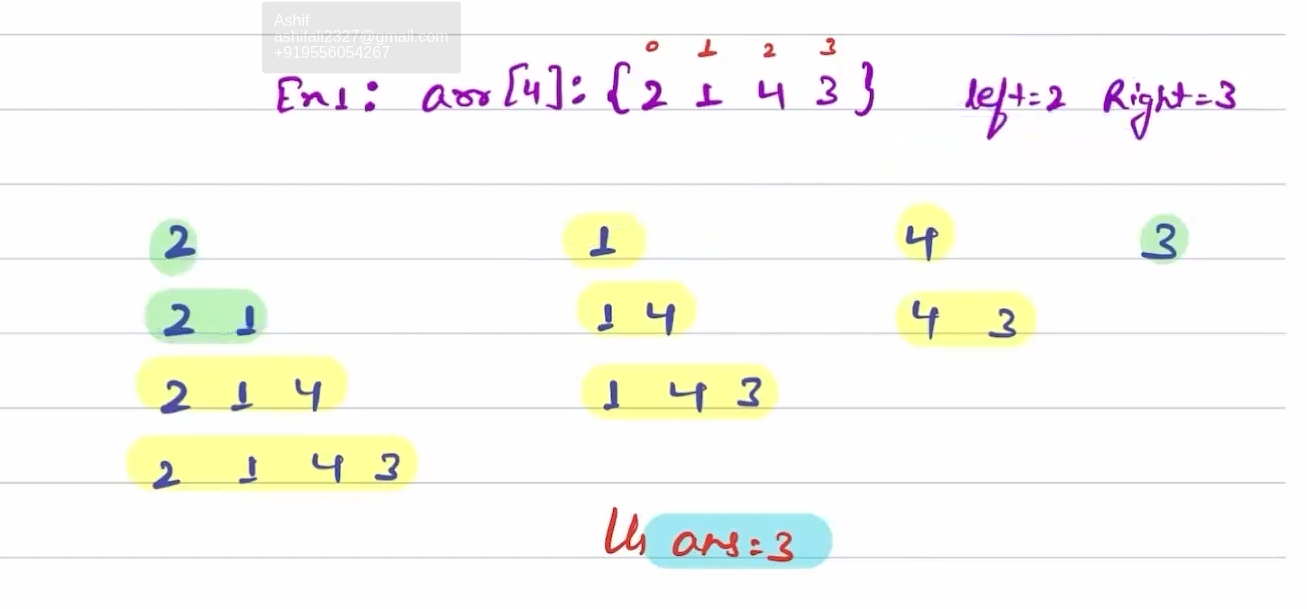 Ashif
ashifali2327@gmail.com
+919556054267
0 1 2 3
Ex1: arr[4]: {2 1 4 3} left=2 Right=3
2 1 4 3
2 1 1 4 4 3
2 1 4 1 4 3
2 1 4 3
ans=3